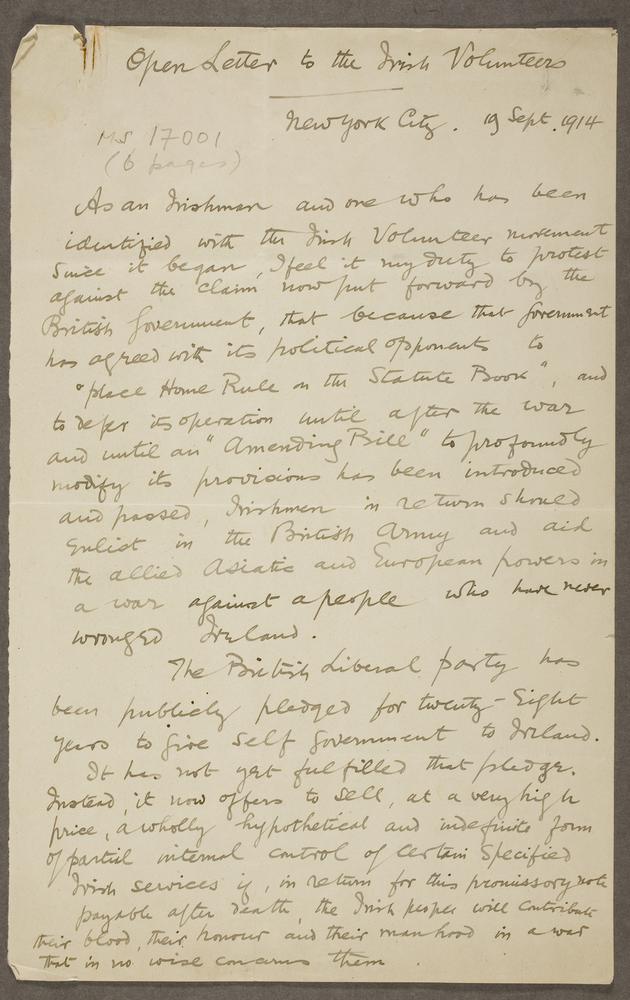 Open Letter to the Irish Volunteers
New York City. 19 Sept. 1914
MS 17001
(6 pages)
As an Irishman and one who has been
identified with the Irish Volunteer movement
since it began, I feel it my duty to protest
against the claim now put forward by the
British Government, that because that Government
has agreed with its political opponents to
"place Home Rule on the Statute Book", and
to defer its operation until after the war
and until an "Amending Bill" to profoundly
modify its provisions has been introduced
and passed, Irishmen in return should
enlist in the British Army and aid
the allied Asiatic and European powers in
a war against a people who have never
wronged Ireland.
The British Liberal party has
been publicly pledged for twenty-Eight
years to give self Government to Ireland.
It has not yet fulfilled that pledge.
Instead, it now offers to sell, at a very high
price, a wholly hypothetical and indefinite form
of partial internal control of certain specified
Irish services if, in return for this promissory note
payable after death, the Irish people will contribute
their blood, their honour and their manhood in a war
that in no wise concerns them.